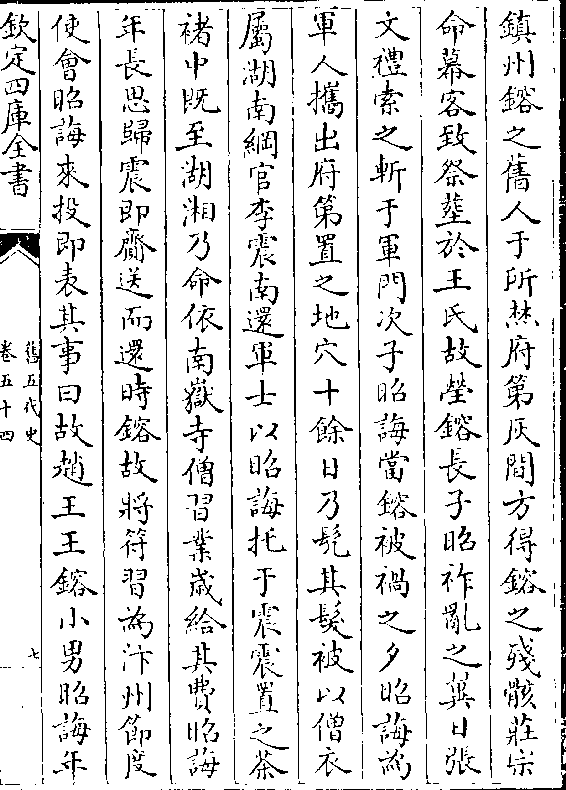 鎮州鎔之舊人于所焚府第灰間方得鎔之殘骸莊宗
命幕客致祭塟於王氏故塋鎔長子昭祚亂之翼日張
文禮索之斬于軍門次子昭誨當鎔被禍之夕昭誨爲
軍人攜出府第置之地穴十餘日乃髡其髮被以僧衣
屬湖南綱官李震南還軍士以昭誨托于震震置之茶
褚中既至湖湘乃命依南嶽寺僧習業歲給其費昭誨
年長思歸震即齎送而還時鎔故將符習為汴州節度
使會昭誨來投即表其事曰故趙王王鎔小男昭誨年
欽定四庫全書
舊五代史
卷五十四
七